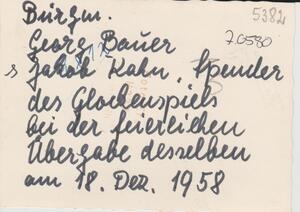 Bürgm.
5382
Georg Bauer
70580
s Jakob Kahn, Spender
des Glockenspiels
bei der feierlichen
Übergabe desselben
am 18. Dez. 1958